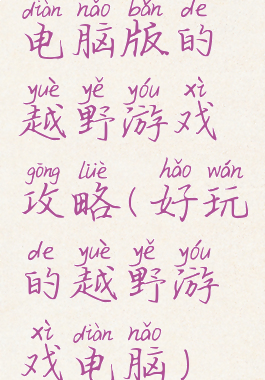 diàn nǎo bǎn de
电脑版的
yuè yě yóu xì
越野游戏
gōng lüè hǎo wán
攻略(好玩
de yuè yě yóu
的越野游
xì diàn nǎo
戏电脑)